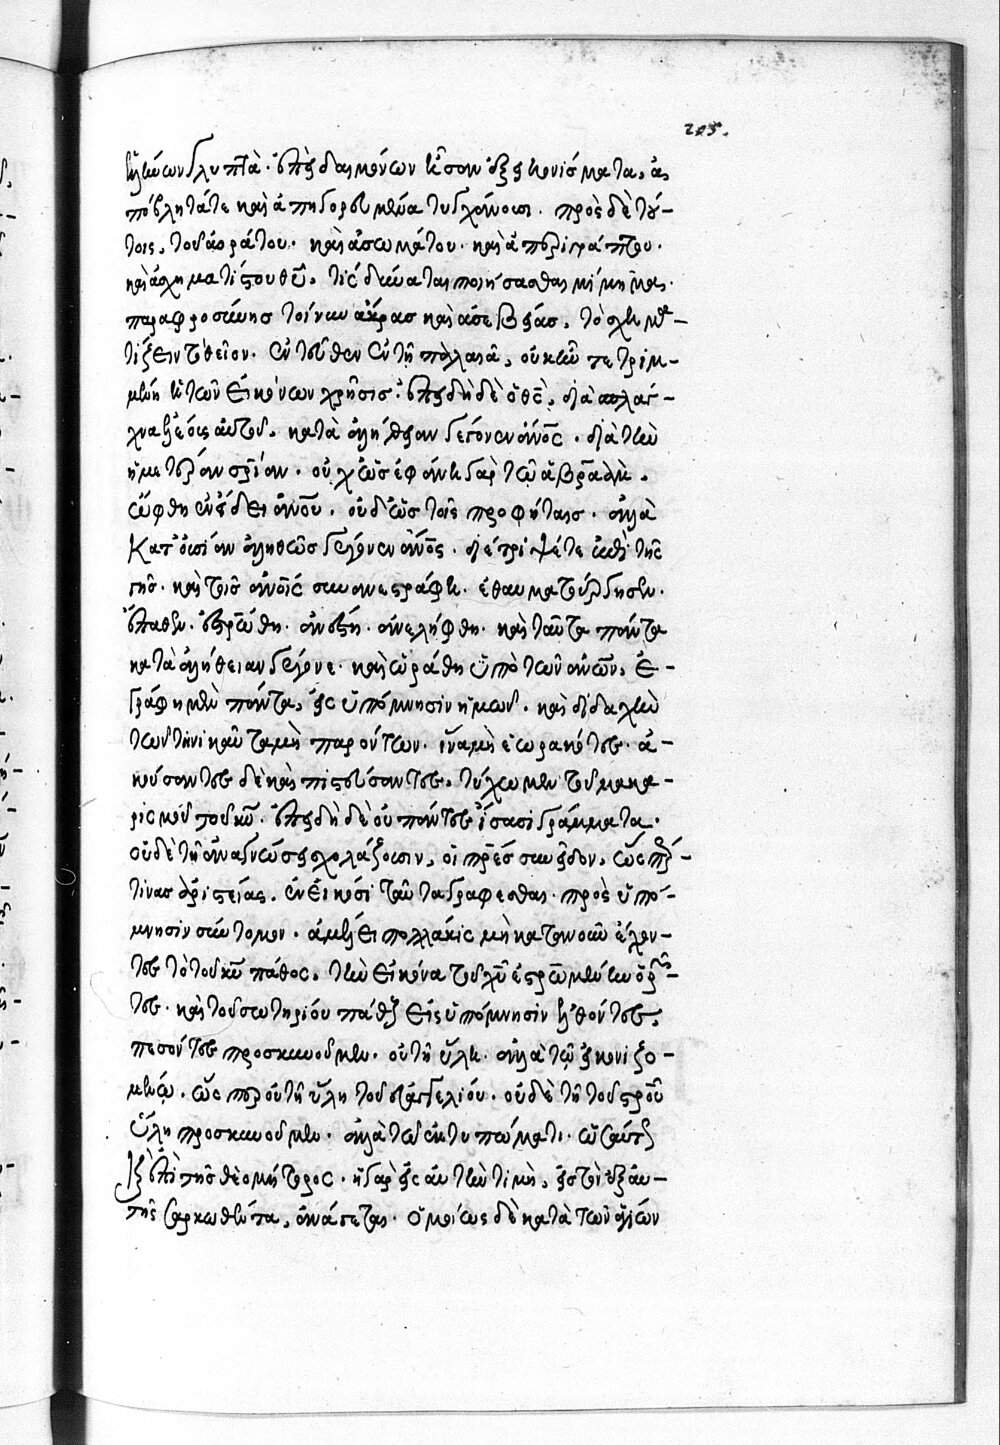 205.
ἑλλήνων γλυπτὰ. ἐπεὶ δαιμόνων ἦσαν ἐξεικονίσματα, ἀ-
πόβλητά τε καὶ ἀπηγορευμένα τυγχάνουσι. πρὸς δὲ τού-
τοις, τοῦ ἀοράτου. καὶ ἀσωμάτου. καὶ ἀπεριγράπτου.
καὶ ἀσχηματίστου θεοῦ, τίς δύναται ποιήσασθαι μίμημα.
παραφροσύνης τοίνυν ἄκρας καὶ ἀσεβείας, τὸ σχημα-
τίζειν τὸ θεῖον. ἐντεῦθεν ἐν τῇ παλαιᾷ, οὐκ ἦν τετριμ-
μένη ἡ τῶν εἰκόνων χρῆσις. ἐπειδὴ δὲ ὁ θς, διὰ σπλάγ-
χνα ἐλέους αὐτοῦ, κατὰ ἀλήθειαν γέγονεν ἄνος. διὰ τὴν
ἡμετέραν σριαν. οὐχ ὡς ἐφάνη γὰρ τῷ ἀβραὰμ.
ὤφθη ἐν εἴδει ἀνου. οὐδ' ὡς τοῖς προφήταις. ἀλλὰ
κατ' οὐσίαν ἀληθῶς γέγονεν ἄνος. διέτριψέ τε ἐπὶ τῆς
γῆς. καὶ τοῖς ἀνοις συνανεστράφη. ἐθαυματούργησεν.
ἔπαθεν. ἐστρώθη. ἀνέστη. ἀνελήφθη. καὶ ταῦτα πάντα
κατὰ ἀλήθειαν γέγονε. καὶ ὡράθη ὑπὸ τῶν ἀνων. ἐ-
γράφη μὲν πάντα, εἰς ὑπόμνησιν ἡμῶν. καὶ διδαχὴν
τῶν τηνικαῦτα μὴ παρόντων. ἵνα μὴ ἑωρακότες. ἀ-
κούσαντες δὲ καὶ πιστεύσαντες. τύχωμεν τοῦ μακα-
ρισμοῦ τοῦ κυ. ἐπειδὴ δὲ οὐ πάντες ἴσασι γράμματα.
οὐδὲ τῇ ἀναγνώσει σχολάζουσιν, οἱ πρες συνεῖδον, ὥσπερ
τινας ἀριστείας, ἐν εἰκόσι ταῦτα γράφεσθαι. πρὸς ὑπό-
μνησιν σύντομον. ἀμέλει πολλάκις μὴ κατανοῦν ἔχον-
τες τὸ τοῦ κυ πάθος, τὴν εἰκόνα τοῦ χυ ἐστρωμένην ὁρῶν-
τες. καὶ τοῦ σωτηρίου πάθους εἰς ὑπόμνησιν ἐλθόντες,
πεσόντες προσκυνοῦμεν. οὐ τῇ ὕλῃ. ἀλλὰ τῷ εἰκονιζο-
μένῳ. ὥσπερ οὐ τῇ ὕλη τοῦ εὐαγγελίου. οὐδὲ τῇ τοῦ στρου
ὕλη προσκυνοῦμεν. ἀλλὰ τῷ ἐκτυπώματι. ὡσαύτως
καὶ ἐπὶ τῆς θεομήτορος. ἡ γὰρ εἰς αὐτὴν τιμὴ, εἰς τὸν ἐξ αὐ-
τῆς σαρκωθέντα, ἀνάγεται. ὁμοίως δὲ κατὰ τῶν ἁγίων